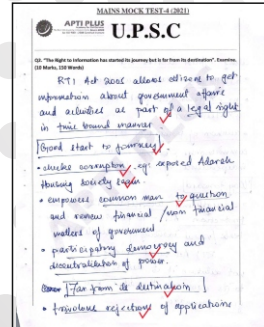 MAINS MOCK TEST-4 (2021)
APTI PLUS
U.P.S.C
Q2. "The Right to Information has started its journey but is far from its destination". Examine.
(10 Marks, 150 Words)
RTI Act 2005 allows citizens to get
information about government affairs
and activities as part of a legal right
in time bound manner
Good start to journey
• checks corruption, eg: exposed Adarsh
Housing Society
• empowers common man to question
and review financial / non financial
matters of government
• participatory democracy and
decentralisation of power.
Far from its destination
• frivolous rejections of applications